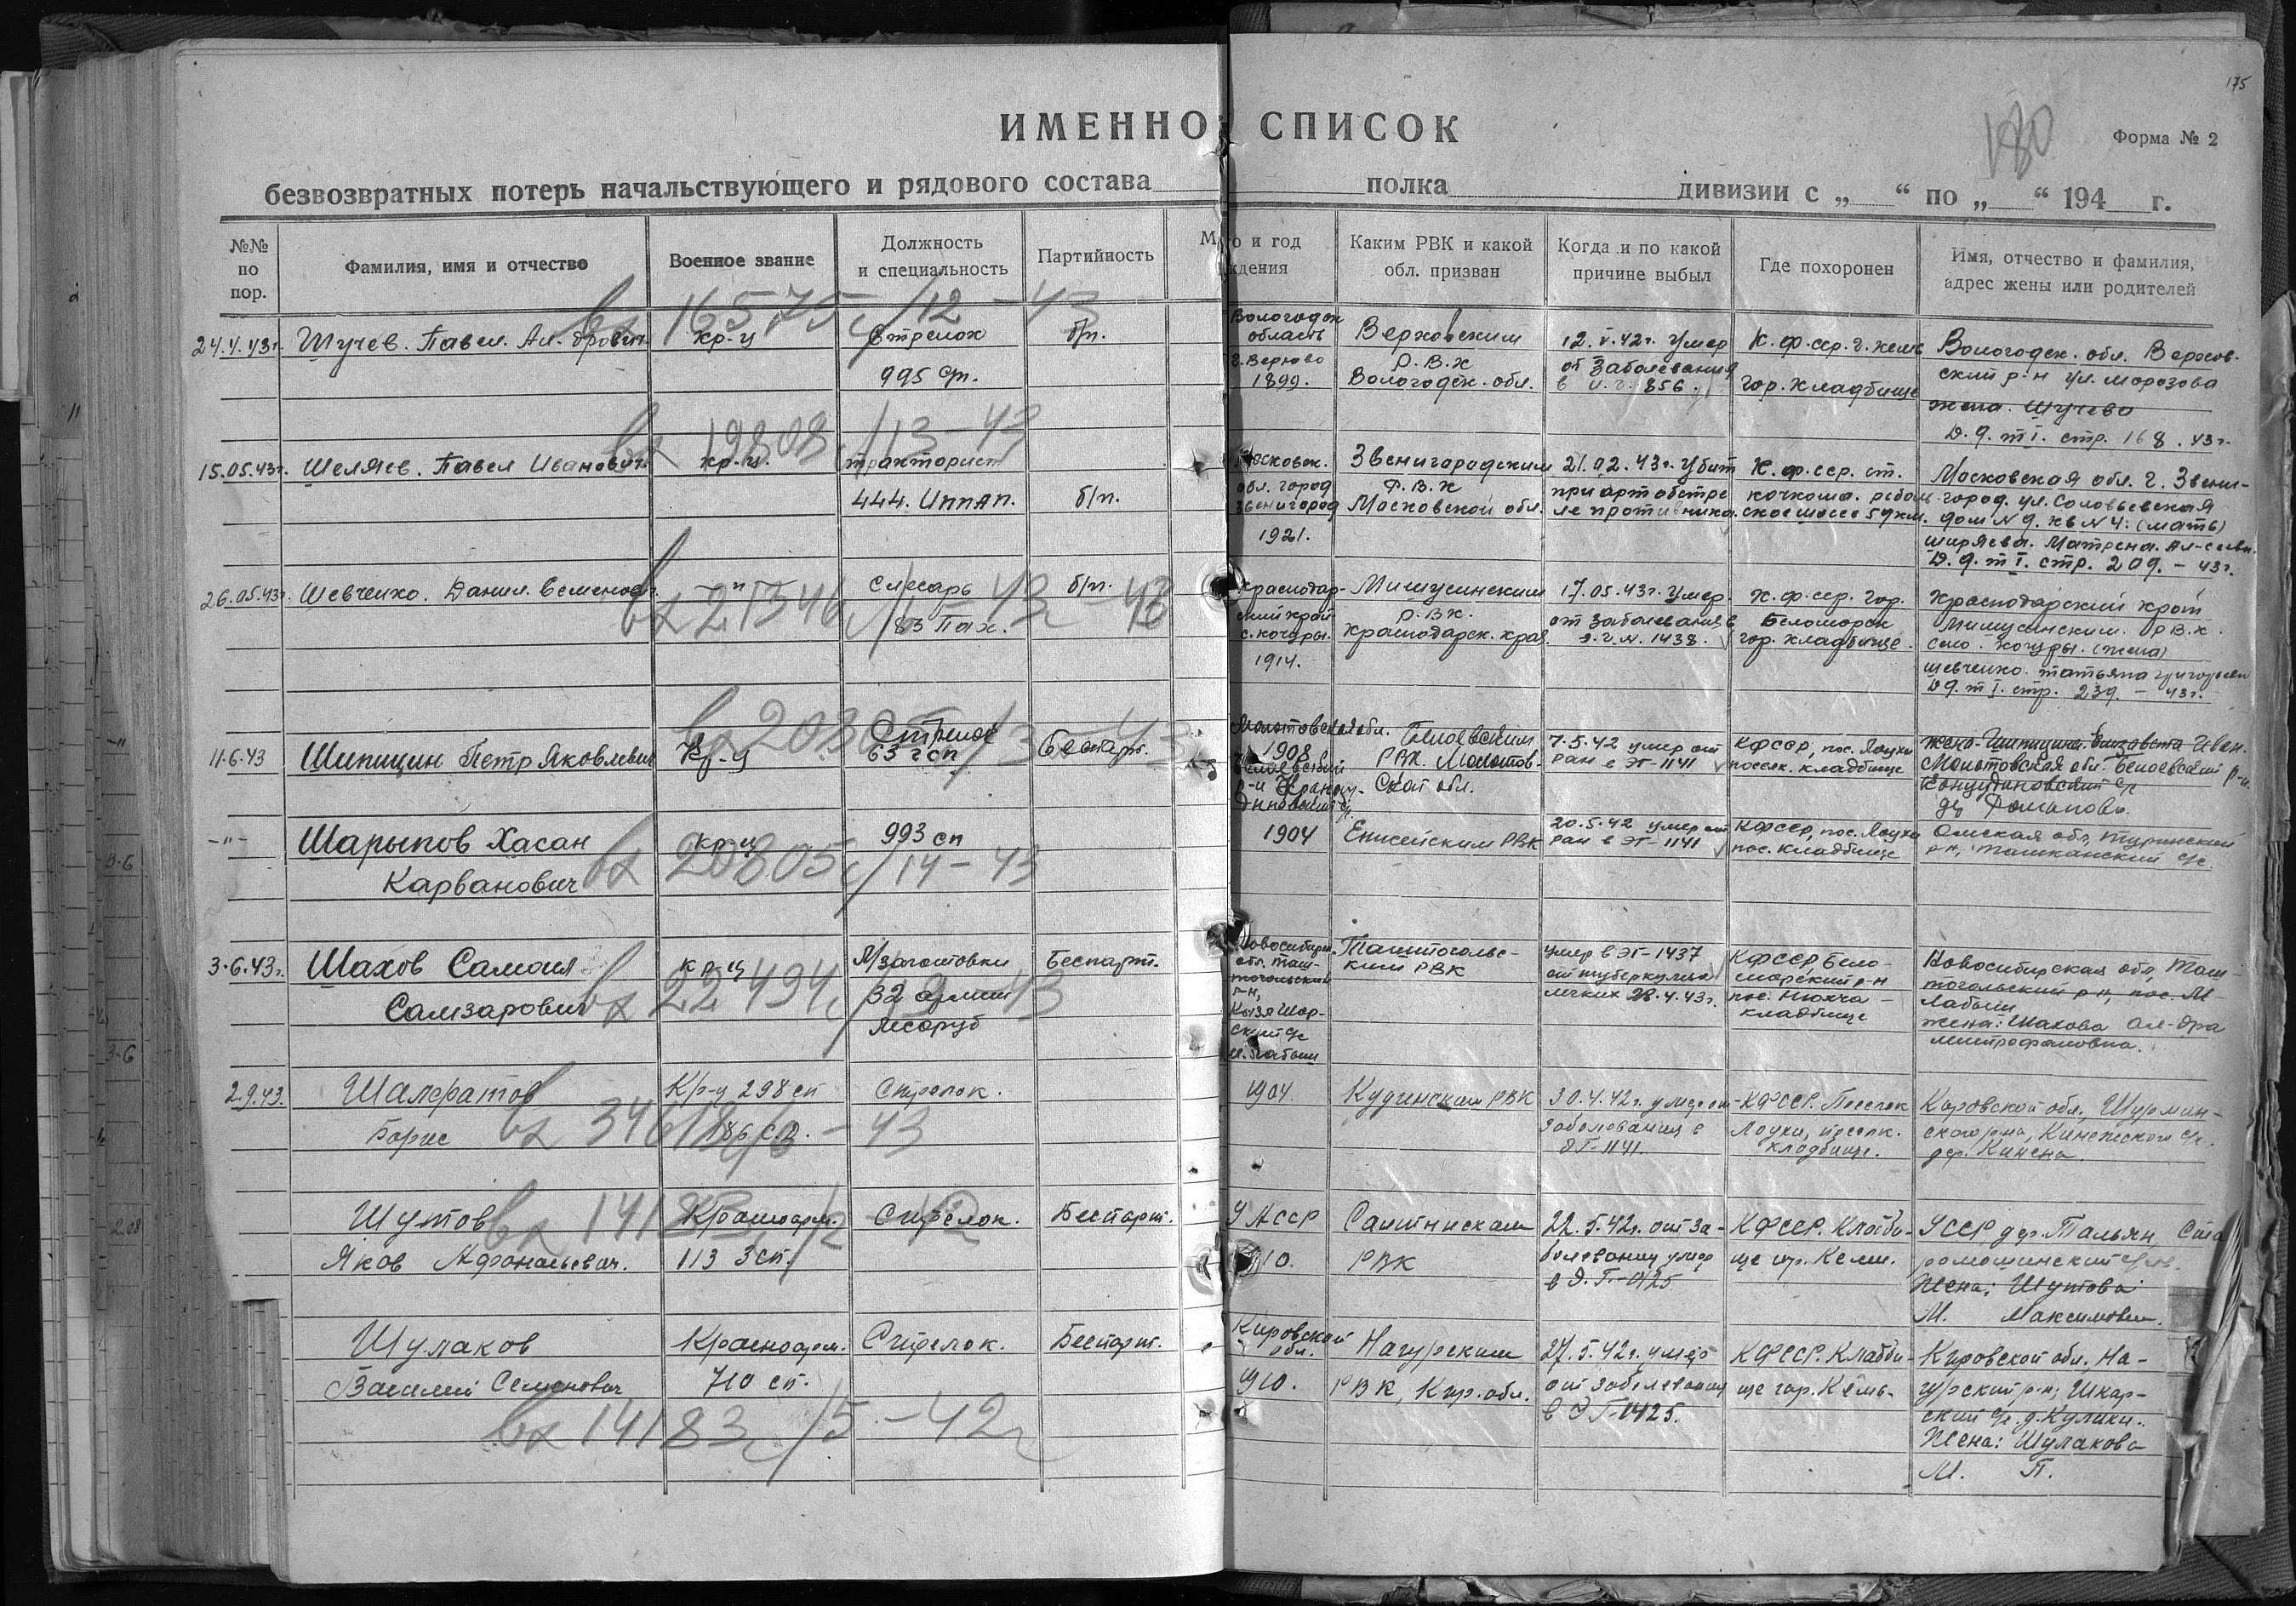 175
180
ИМЕННО СПИСОК
Форма № 2
безвозвратных потерь начальствующего и рядового состава полка дивизии с „ “ по „ “ 194 г.
№№ по пор.
Фамилия, имя и отчество
Военное звание
Должность и специальность
Партийность
М о и год дения
Каким РВК и какой обл. призван
Когда и по какой причине выбыл
Где похоронен
Имя, отчество и фамилия, адрес жены или родителей
вх 16575с/12-43
24.4.43г. Шучев. Павел. Ал. дрович. кр-ц Стрелок б/п.
995 сп.
Вологодск область
г. Верхово
1899.
Верховским
Р.В.К
Вологодск. обл.
12.V.42г. умер
от заболевания
в и.г. 856.
К.ф.сср.г. кемь
гор. кладбище
Вологодск. обл. Верхов-
ский р-н ул. морозова
жена. Шучево
D.9. т I. стр. 168. 43г.
вх 19808с/13-43
15.05.43г. Шеляев. Павел Иванович кр.ц. тракторист
444. иппап. б/п.
Московск.
обл. город
Звенигород
1921.
Звенигородским
Р.В.К
Московской обл.
21.02.43г. Убит
при артобстре
ле противника.
К.ф.сср. ст.
кочкома. реболь
ское шоссе 59км.
Московская обл. г. Звени-
город. ул. Соловьевская
дом N 9. кв N 4. (мать)
ширяева. Матрена. Ал-сеевн.
D.9. т I. стр. 209. - 43г.
26.05.43г. Шевченко. Данил. Семенов. " Слесарь б/п.
83 Пах.
Краснодар-
ский край
с. кочуры.
1914.
Р.В.К.
Краснодарск. края
17.05.43г. умер.
от заболевания в
э.г.N. 1438.
К.ф.сср. гор.
Беломорск
гор. кладбище.
Краснодарский край
Р.В.К.
село. кочуры. (жена)
шевченко. татьяна григорьев
D9. т I. стр. 239. - 43г.
11.6.43 Шипицин Петр Яковлевич Кр-ц Стрелок
63 гсп Беспарт.
Молотовская обл.
1908
Белоевский
Белоевским
РВК. Молотов-
ской обл.
7.5.42 умер от
ран в ЭГ-1141
КФССР, пос. Лоухи
поселк. кладбище
Жена-Шипицина Елизавета Иван.
Молотовская обл. Белоевский р-н.
-"- Шарыпов Хасан
Карванович
кр-ц 993 сп
вх 20805с/14-43
1904 Енисейским РВК
20.5.42 умер от
ран в ЭГ-1141
КФССР, пос. Лоухи
пос. кладбище
Омская обл, Туринский
р-н, Ташканский с/с.
3.6.43г. Шахов Самоил
Самзарович
кр-ц М/заготовки
32 армии
Лесоруб
Беспарт.
вх 22494с
Новосибирск.
обл. Таш-
тогольский
р-н,
Кызя Шор-
ский с/с
п. Лабыш
Таштогольс-
ким РВК
Умер в ЭГ-1437
от туберкулеза
легких 28.4.43г.
КФССР Бело-
морский р-н
пос. Нюхча -
кладбище
Новосибирская обл, Таш-
тогольский р-н, пос. М-
Лабыш
жена: Шахова Ал-дра
митрофановна.
2.9.43. Шалфратов
Борис
Кр-ц 298 сп
186 С.Д.
Стрелок.
1904. Кудинским РВК
30.4.42г. умер от
заболевания в
ЭГ-1141.
КФССР. Поселок
Лоухи, поселк.
кладбище.
Кировской обл., Шурмин-
дер. Кинена.
Шутов
Яков Афанасьевич.
Красноарм.
113 Зсп.
Стрелок. Беспарт.
УАССР
1910.
РВК
22.5.42г. от за-
болевания умер
в Э.Г.-0125
КФССР. Кладби-
ще гор. Кеми.
УССР дер. Пальян, Ста
ромошинский с/с.
Жена: Шутова
М. Максимовн.
Шулаков
Василий Семенович
Красноарм.
710 сп.
Стрелок. Беспарт.
вх 14183с/5-42г
Кировской
обл.
1910.
Нагурским
РВК, Кир. обл.
27.5.42г. умер
от заболевания
в ЭГ-0125.
КФССР. Кладби-
ще гор. Кемь.
Кировской обл. На-
гурский р-н, Шкар-
ский с/с. д. Кулики.
Жена: Шулакова
М. П.